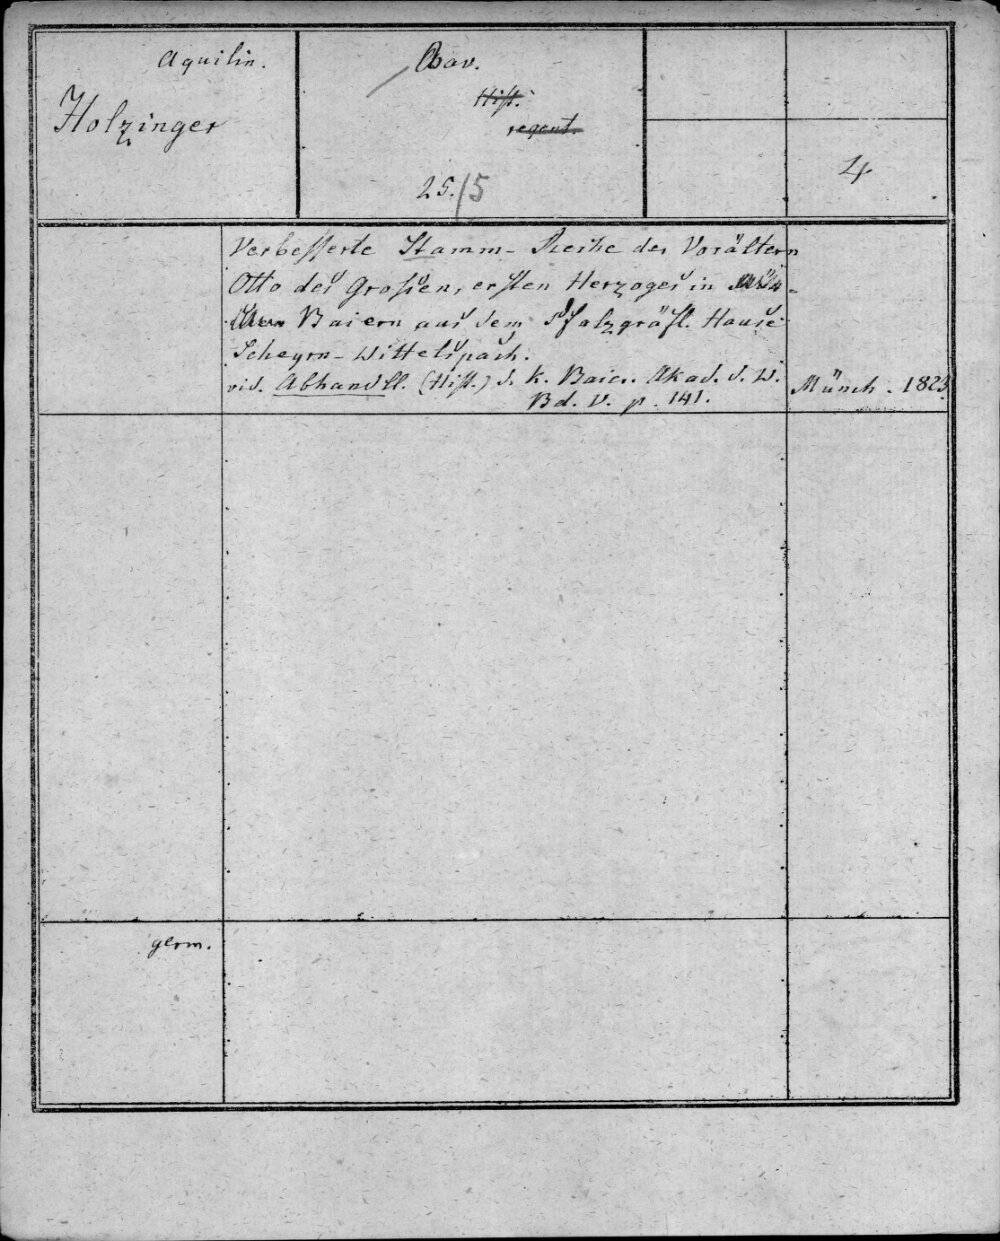 Aquilin.
Holzinger
Bav.
Hist.
regent.
25./5
4
Verbesserte Stamm-Reihe der Vorältern
Otto des Großen, ersten Herzoges in
Baiern aus dem Pfalzgräfl. Hause
Scheyrn-Wittelspach.
vid. Abhandll. (Hist.) d. k. Baier. Akad. d. W.
Bd. V. p. 141.
Münch. 1823.
germ.